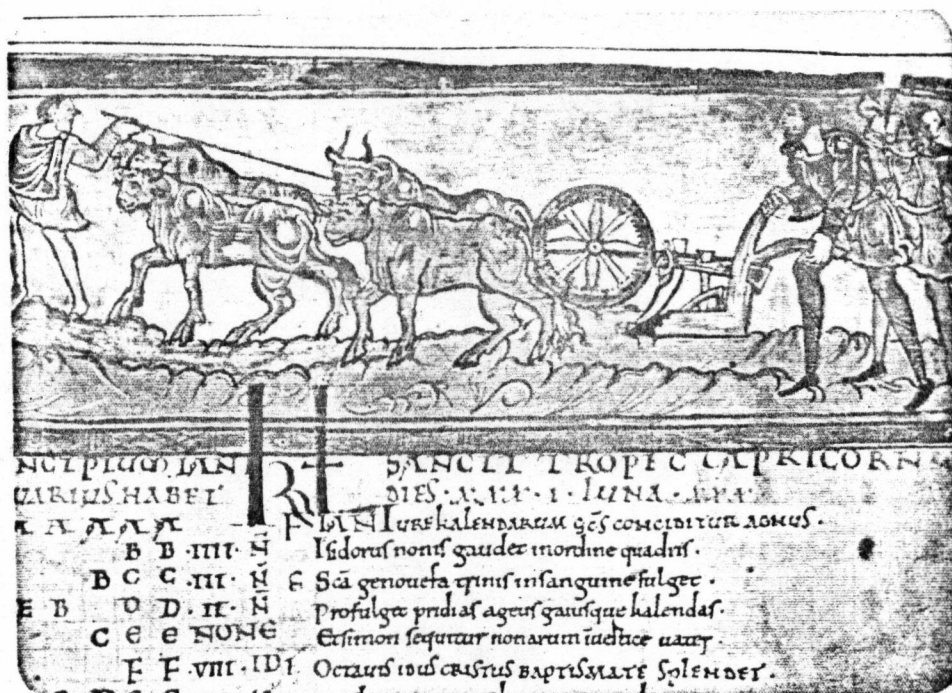 NCIPIUM IAN KL SANCTI TROPEC CAPRICORN
UARIUS HABET DIES · XXX · I · LUNA · XXX
A A A A F IANI URE kALENDARUM q̄c̄s CONCIDITUR AGNUS ·
B B · IIII · N̄ Isidorus nonis gaudet in ordine quadris ·
B C C · III · N̄ F Sc̄a genouefa trinis in sanguine fulget ·
E B D D · II · N̄ Profulget pridias ageus gaiusque kalendas ·
C e e NONE Et simon sequitur nonarum uates
F F · VIII · IDI · OCTAUIS IDUS CRISTUS BAPTISMATE SPLENDET ·